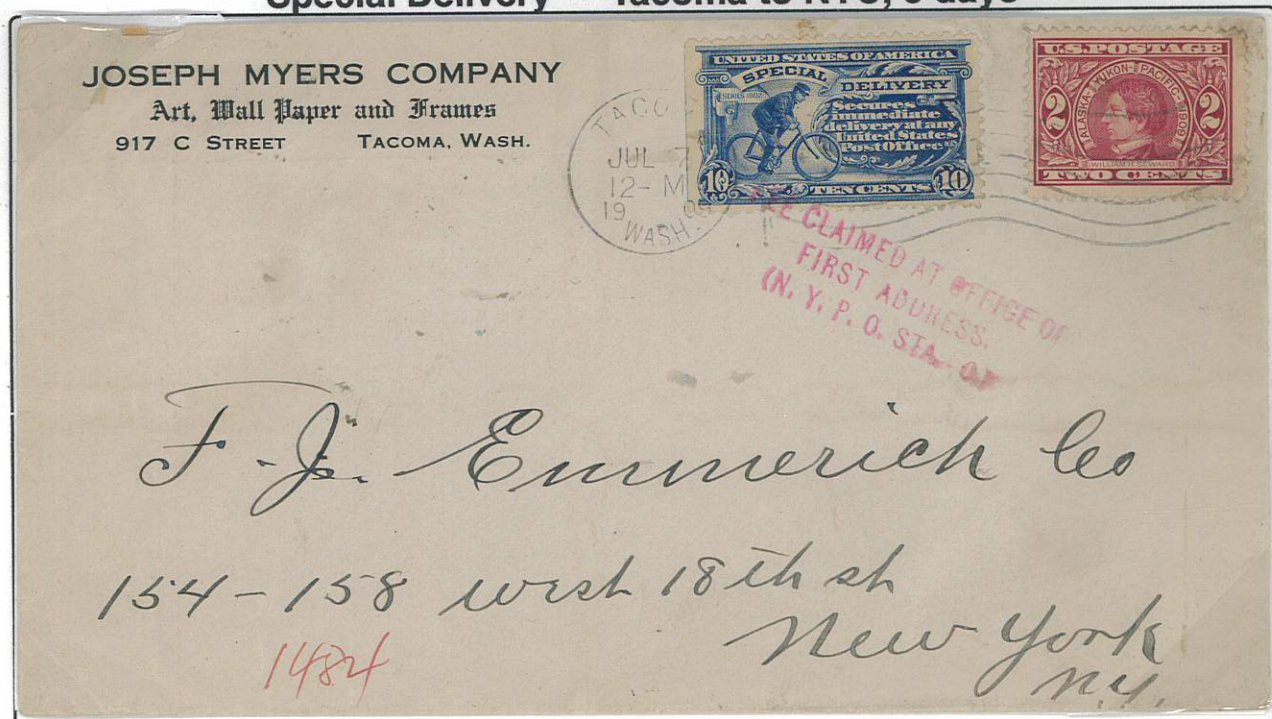 Special Delivery Tacoma to NYC, days
JOSEPH MYERS COMPANY
Art, Wall Paper and Frames
917 C STREET TACOMA, WASH.
TACO
JUL 7
12- M
19 09
WASH.
UNITED STATES OF AMERICA
SPECIAL DELIVERY
SERIES 1902
Secures
immediate
delivery at any
United States
Post Office
10 TEN CENTS 10
U.S. POSTAGE
2 ALASKA-YUKON-PACIFIC-1909 2
WILLIAM H. SEWARD
TWO CENTS
CLAIMED AT OFFICE OF
FIRST ADDRESS.
(N. Y. P. O. STA.
F. J. Emmerich Co
154-158 west 18th st
New York
N.Y.
1484